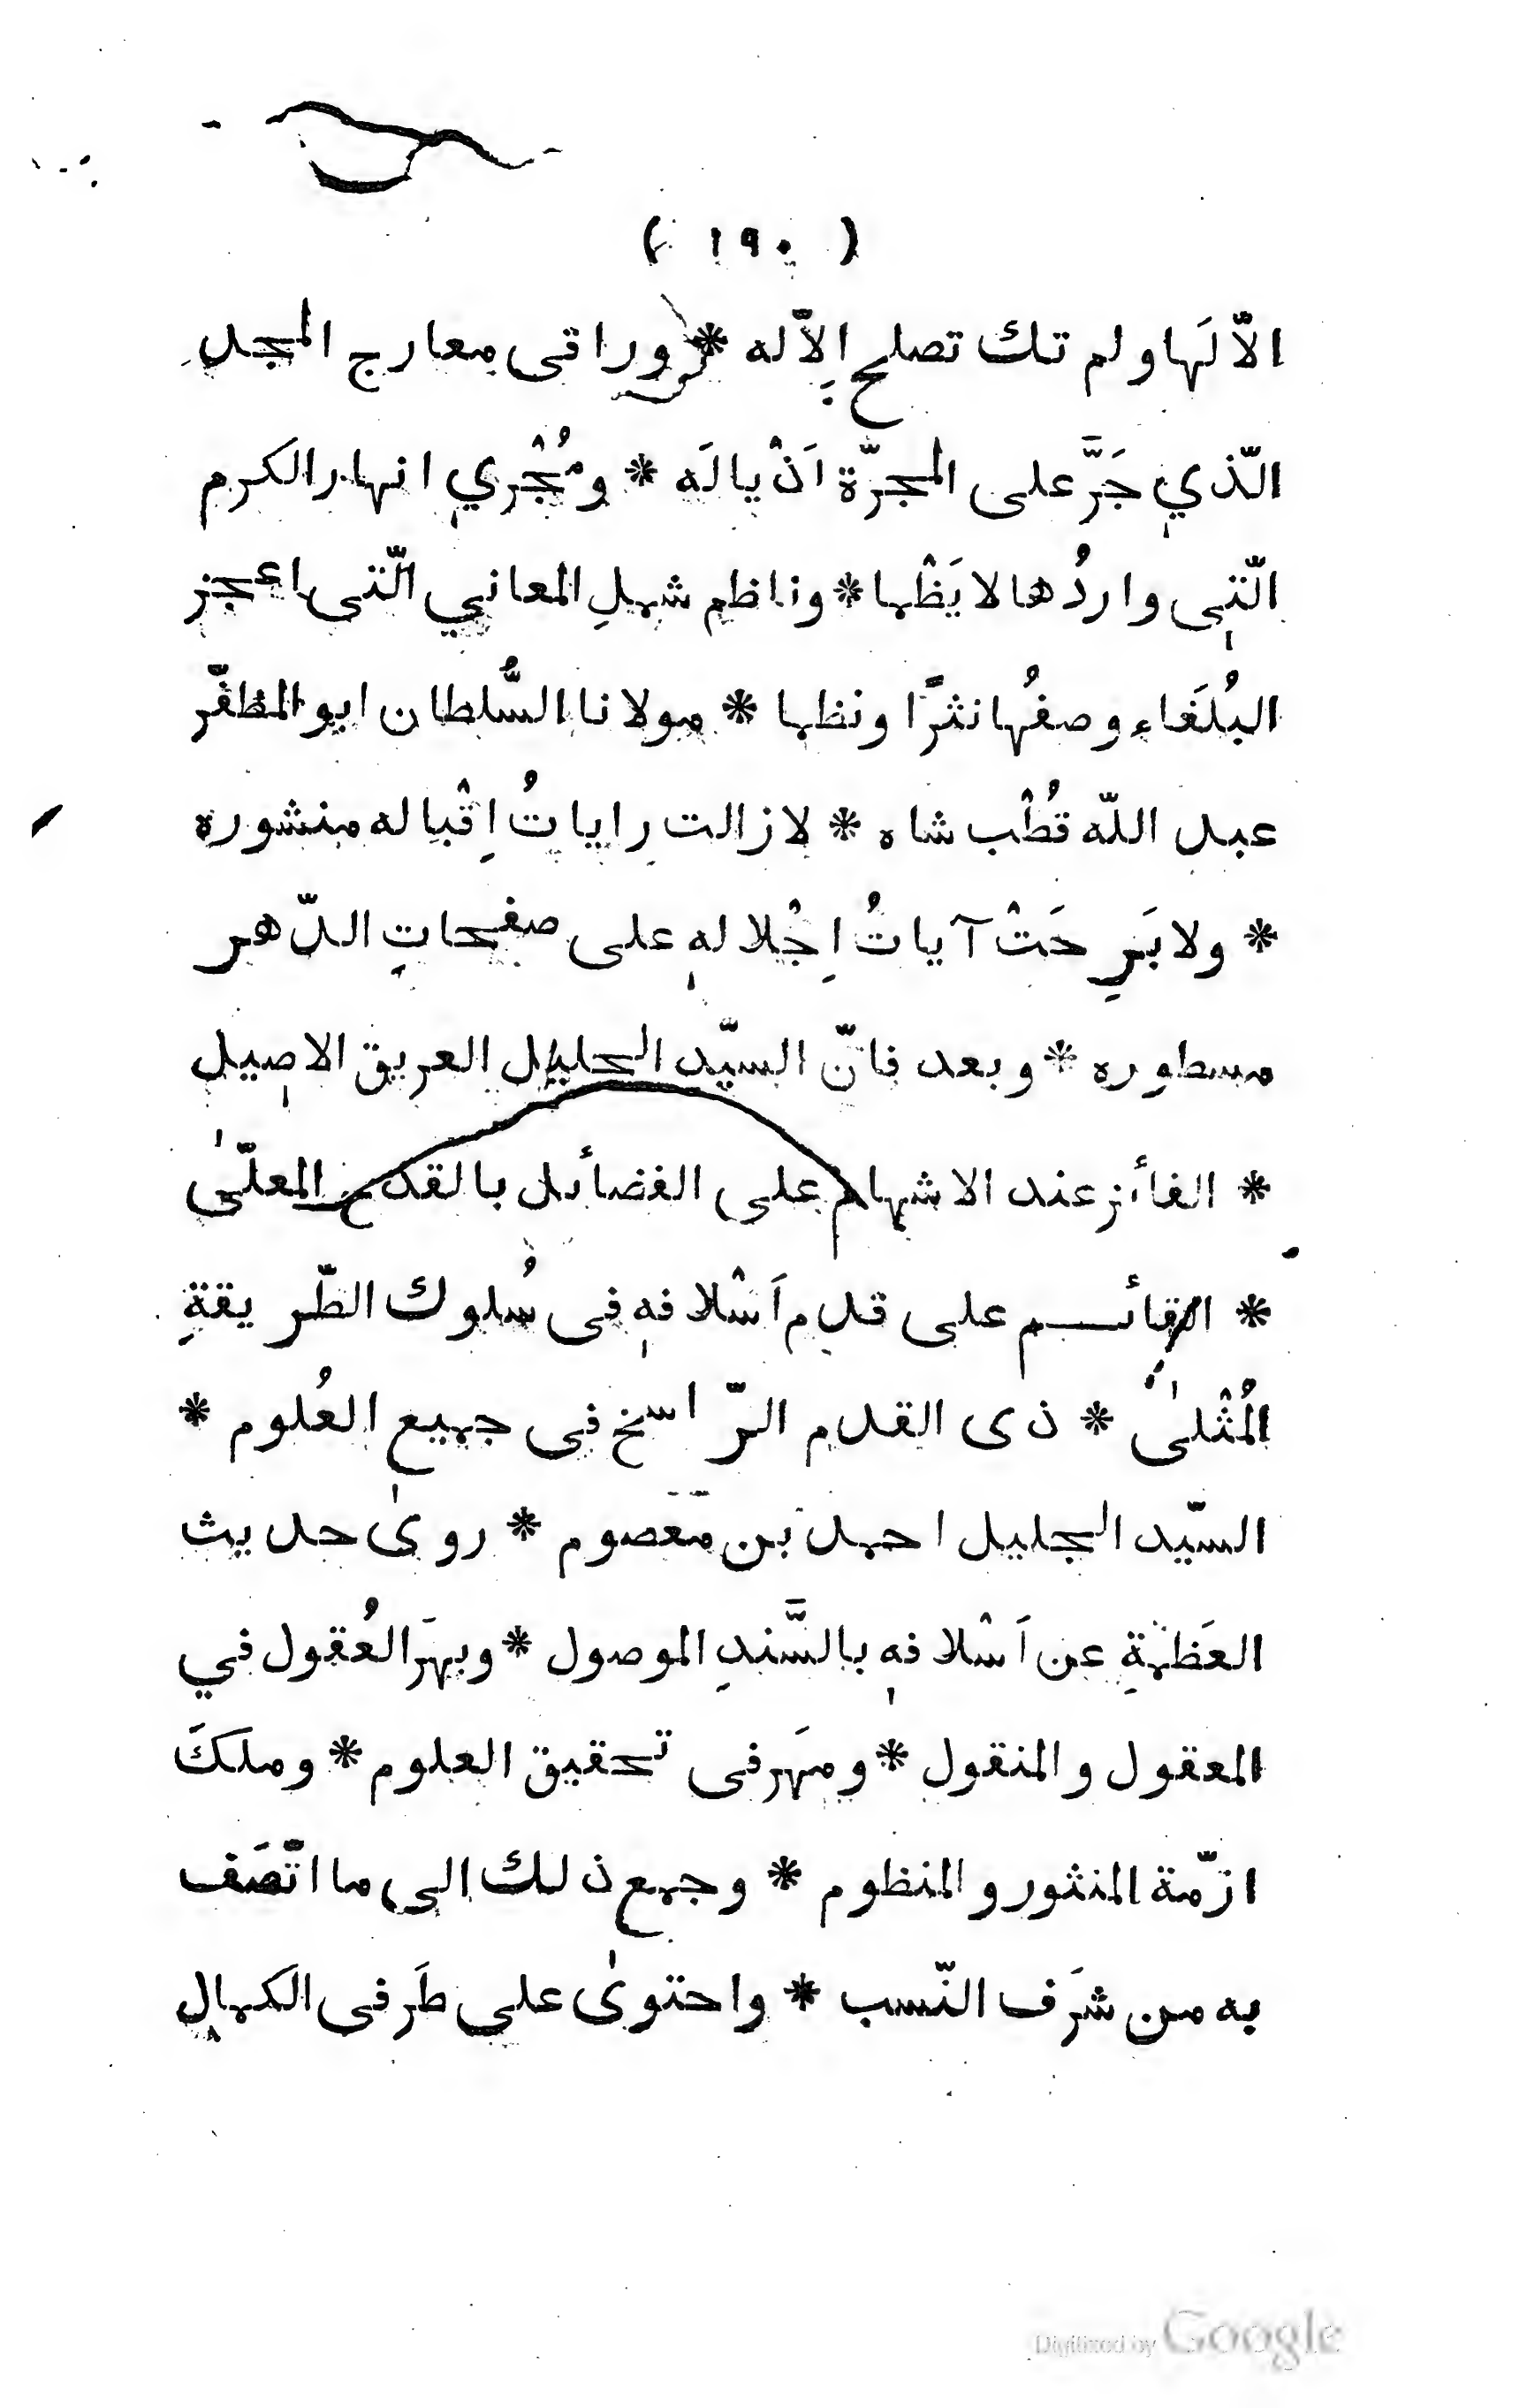 ( ١٩٠ )
الّا لَها ولم تك تصلح اِلّا له * وراقى معارج المجدِ
الّذي جَرَّ على المجرّة اَذْيا لَه * ومُجْري انهار الكرم
الّتى واردُها لا يَظْما * وناظم شملِ المعاني الّتى اعجز
البُلَغَاء وصفُها نثرًا ونظما * مولانا السُّلطان ابو المظفّر
عبد اللّه قُطْب شاه * لا زالت راياتُ اِقْباله منشوره
* ولا بَرِحَتْ آياتُ اِجْلالهٖ على صفحاتِ الدّهر
مسطوره * وبعد فانّ السيّد الجليل العريق الاصيل
* الفأئز عند الاسْهام على الفضأئل بالقدح المعلّىٰ
* القائم على قدم اَسْلافهٖ فى سُلوك الطّريقةِ
المُثْلىٰ * ذى القدم الرّاسخ فى جميع العُلوم *
السّيد الجليل احمد بن مَعصوم * روىٰ حديث
العَظمَةِ عن اَسْلافهٖ بالسَّندِ الموصول * وبهَر العُقول في
المعقول والمنقول * ومهَر فى تحقيق العلوم * وملكَ
ازمّة المنثور والمنظوم * وجمع ذلك الى ما اتّصَف
به من شرَف النّسب * واحتوىٰ على طَرفى الكمال
Digitized by Google